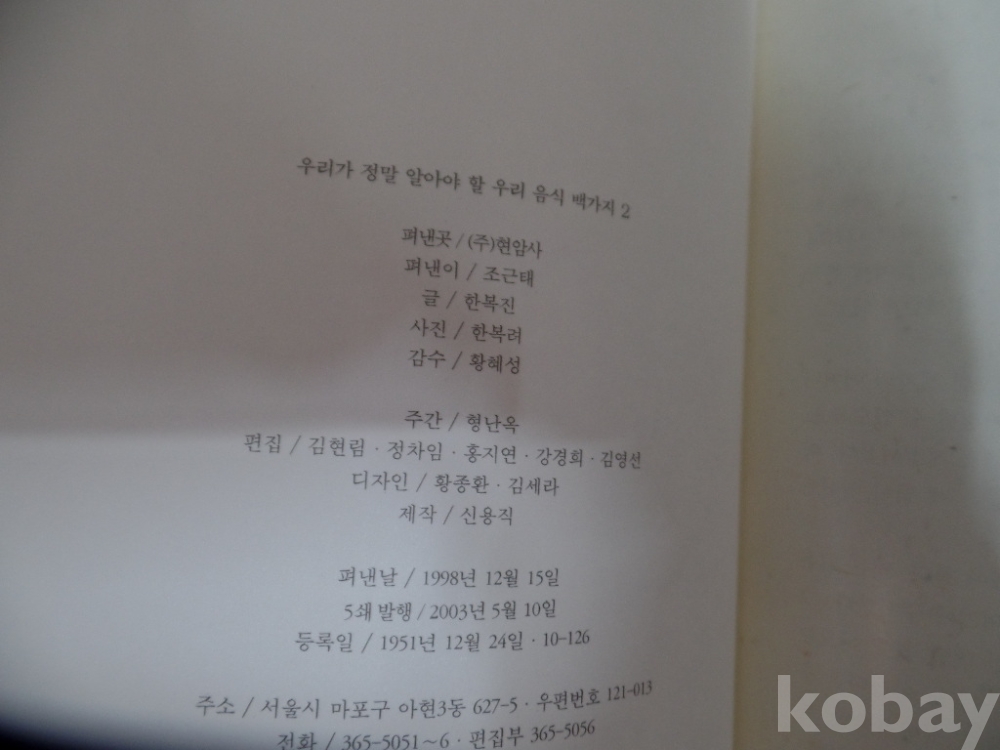 우리가 정말 알아야 할 우리 음식 백가지 2
펴낸곳 / (주)현암사
펴낸이 / 조근태
글 / 한복진
사진 / 한복려
감수 / 황혜성
주간 / 형난옥
편집 / 김현림 · 정차임 · 홍지연 · 강경희 · 김영선
디자인 / 황종환 · 김세라
제작 / 신용직
펴낸날 / 1998년 12월 15일
5쇄 발행 / 2003년 5월 10일
등록일 / 1951년 12월 24일 · 10-126
주소 / 서울시 마포구 아현3동 627-5 · 우편번호 121-013
전화 / 365-5051~6 · 편집부 365-5056
kobay